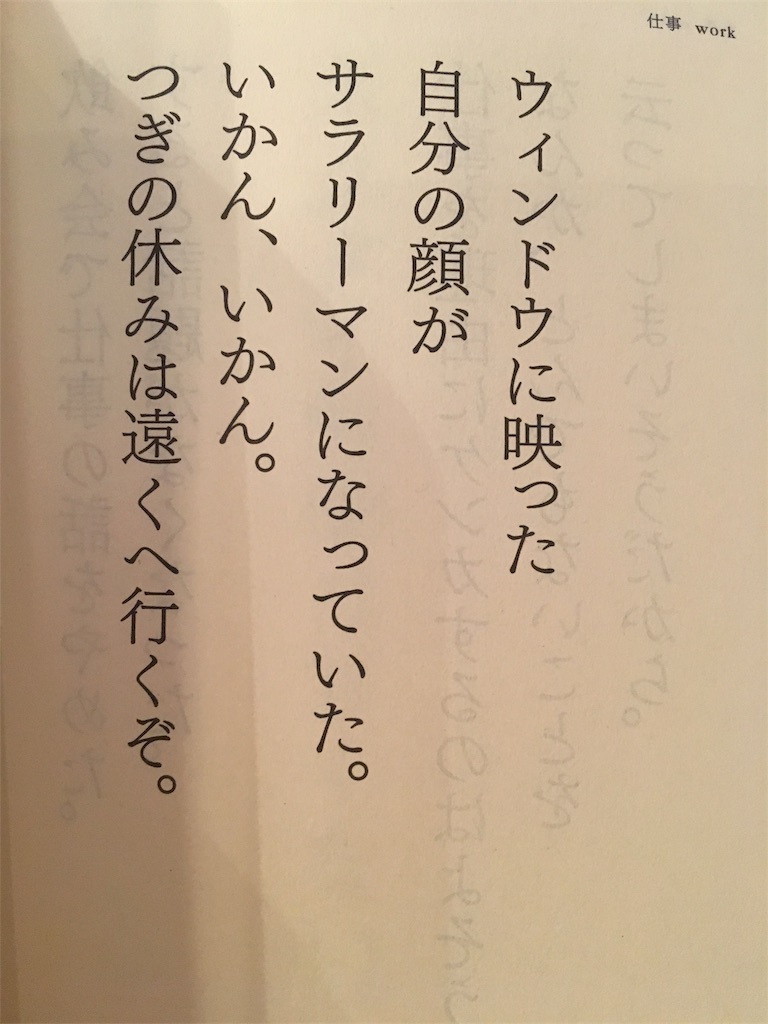 仕事 work
ウィンドウに映った
自分の顔が
サラリーマンになっていた。
いかん、いかん。
つぎの休みは遠くへ行くぞ。